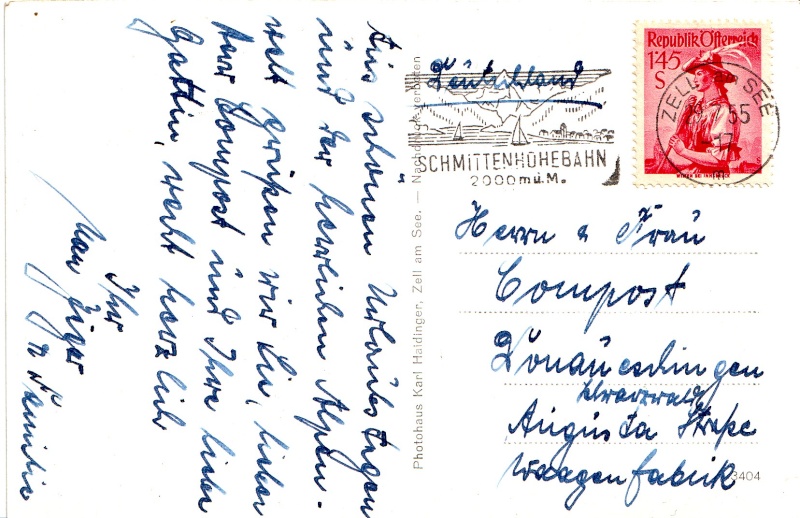 Aus schönen Urlaubstagen
und der herrlichen Alpen-
welt grüßen wir Sie, lieber
Herr Compost und Ihre liebe
Gattin, recht herzlich
Ihr
Max
u. Familie
Photohaus Karl Haidinger, Zell am See. — Nachdruck verboten
Deutschland
SCHMITTENHÖHEBAHN
2000 m ü. M.
Republik Österreich
1'45
S
ZELL SEE
55
17
Herrn u Frau
Compost
Donaueschingen
Schwarzwald
Augusta Straße
Waagenfabrik
3404